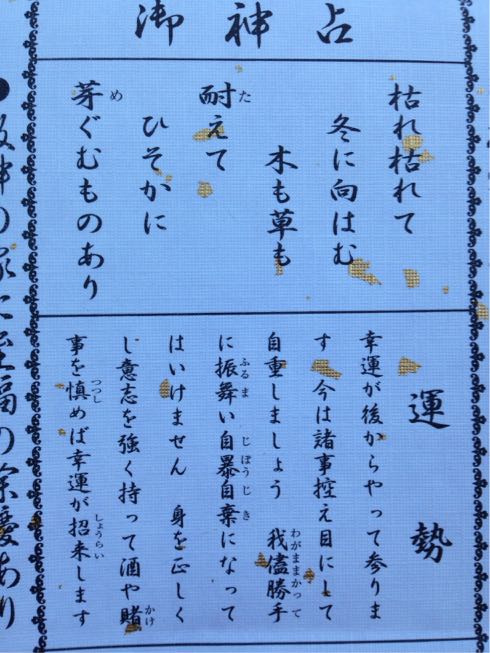 御神占
枯れ枯れて
冬に向はむ
木も草も
耐えて
ひそかに
芽ぐむものあり
運勢
幸運が後からやって参りま
す 今は諸事控え目にして
自重しましょう 我儘勝手
に振舞い自暴自棄になって
はいけません 身を正しく
し意志を強く持って酒や賭
事を慎めば幸運が招来します
の家に至福の余慶あり